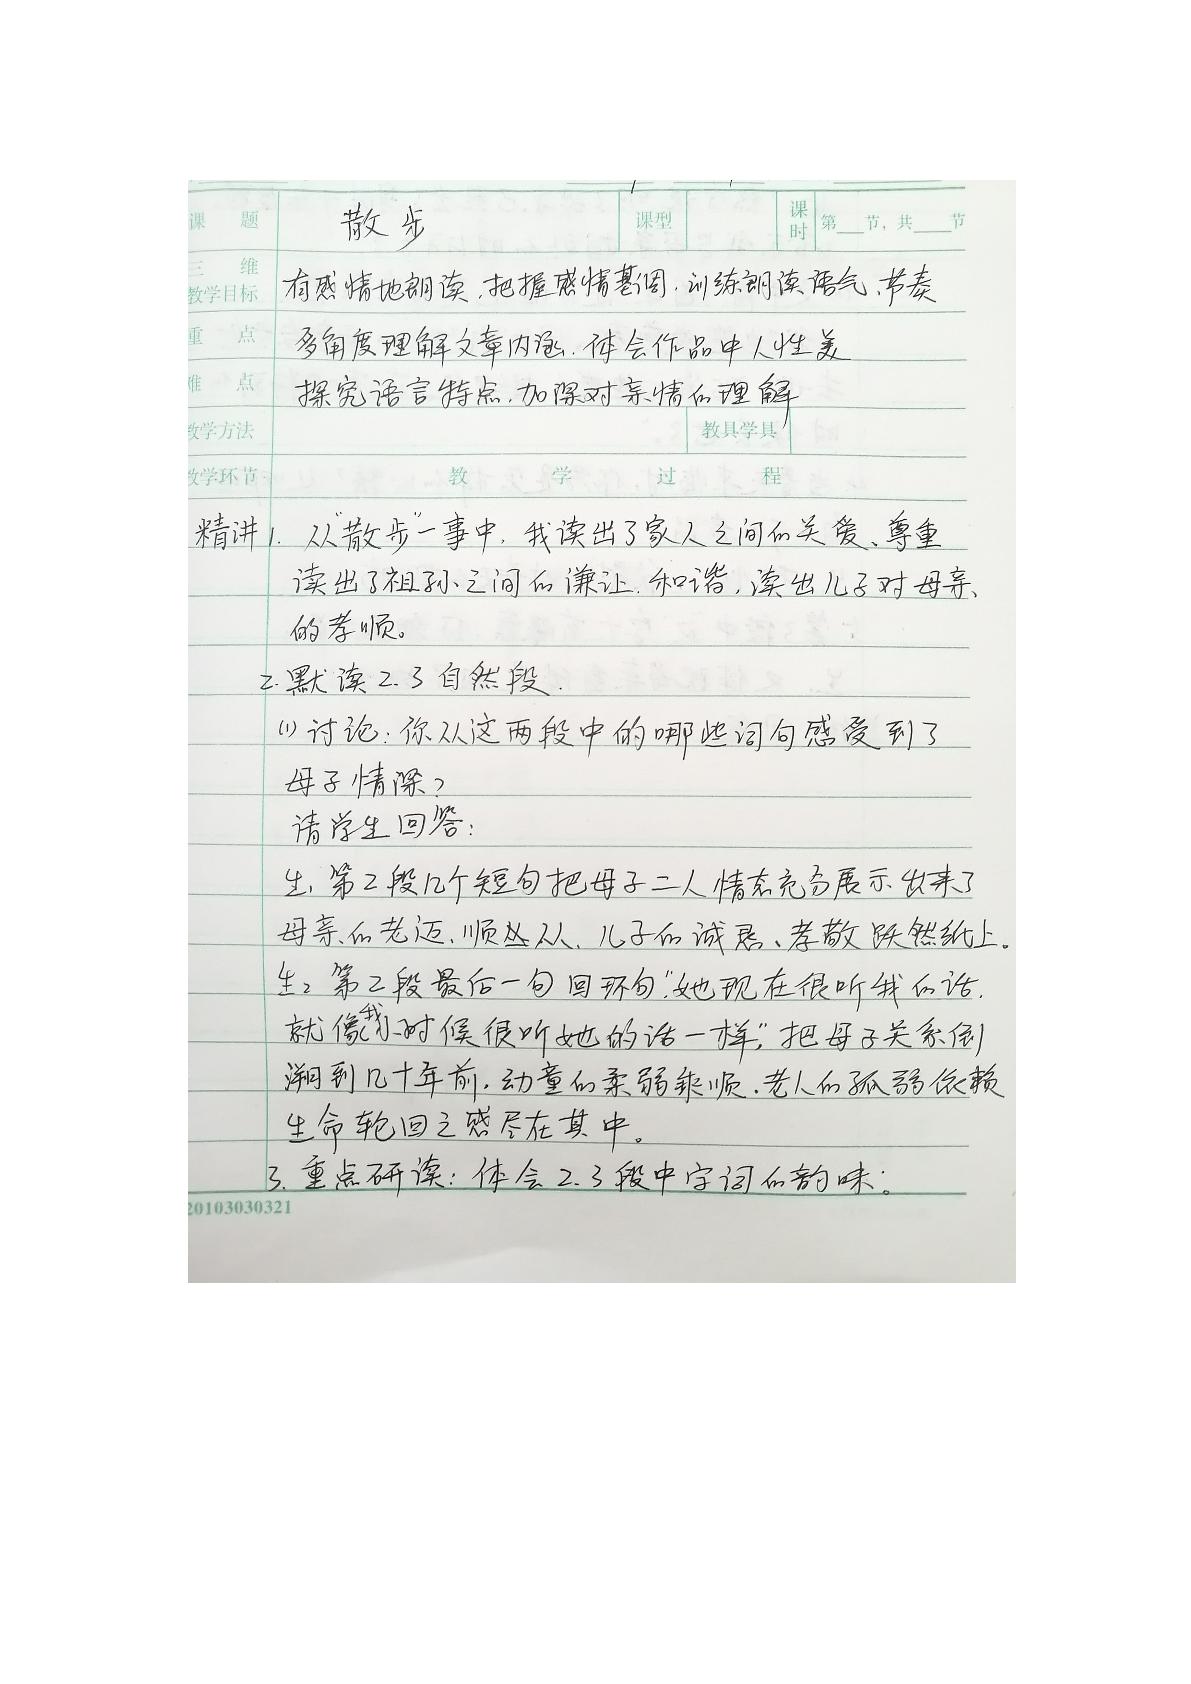 课 题 散步 课型 课时 第___节，共____节
三 维
教学目标 有感情地朗读、把握感情基调，训练朗读语气、节奏
重 点 多角度理解文章内涵，体会作品中人性美
难 点 探究语言特点，加深对亲情的理解
教学方法 教具学具
教学环节 教 学 过 程
精讲 1. 从“散步”一事中，我读出了家人之间的关爱、尊重
读出了祖孙之间的谦让、和谐，读出儿子对母亲
的孝顺。
2. 默读2.3自然段.
(1) 讨论：你从这两段中的哪些词句感受到了
母子情深？
请学生回答：
生1 第2段几个短句把母子二人情态充分展示出来了
母亲的老迈、顺从，儿子的诚恳、孝敬跃然纸上。
生2 第2段最后一句回环句“她现在很听我的话，
就像我小时候很听她的话一样”，把母子关系倒
溯到几十年前，幼童的柔弱乖顺、老人的孤弱依赖
生命轮回之感尽在其中。
3. 重点研读：体会2.3段中字词的韵味：
20103030321